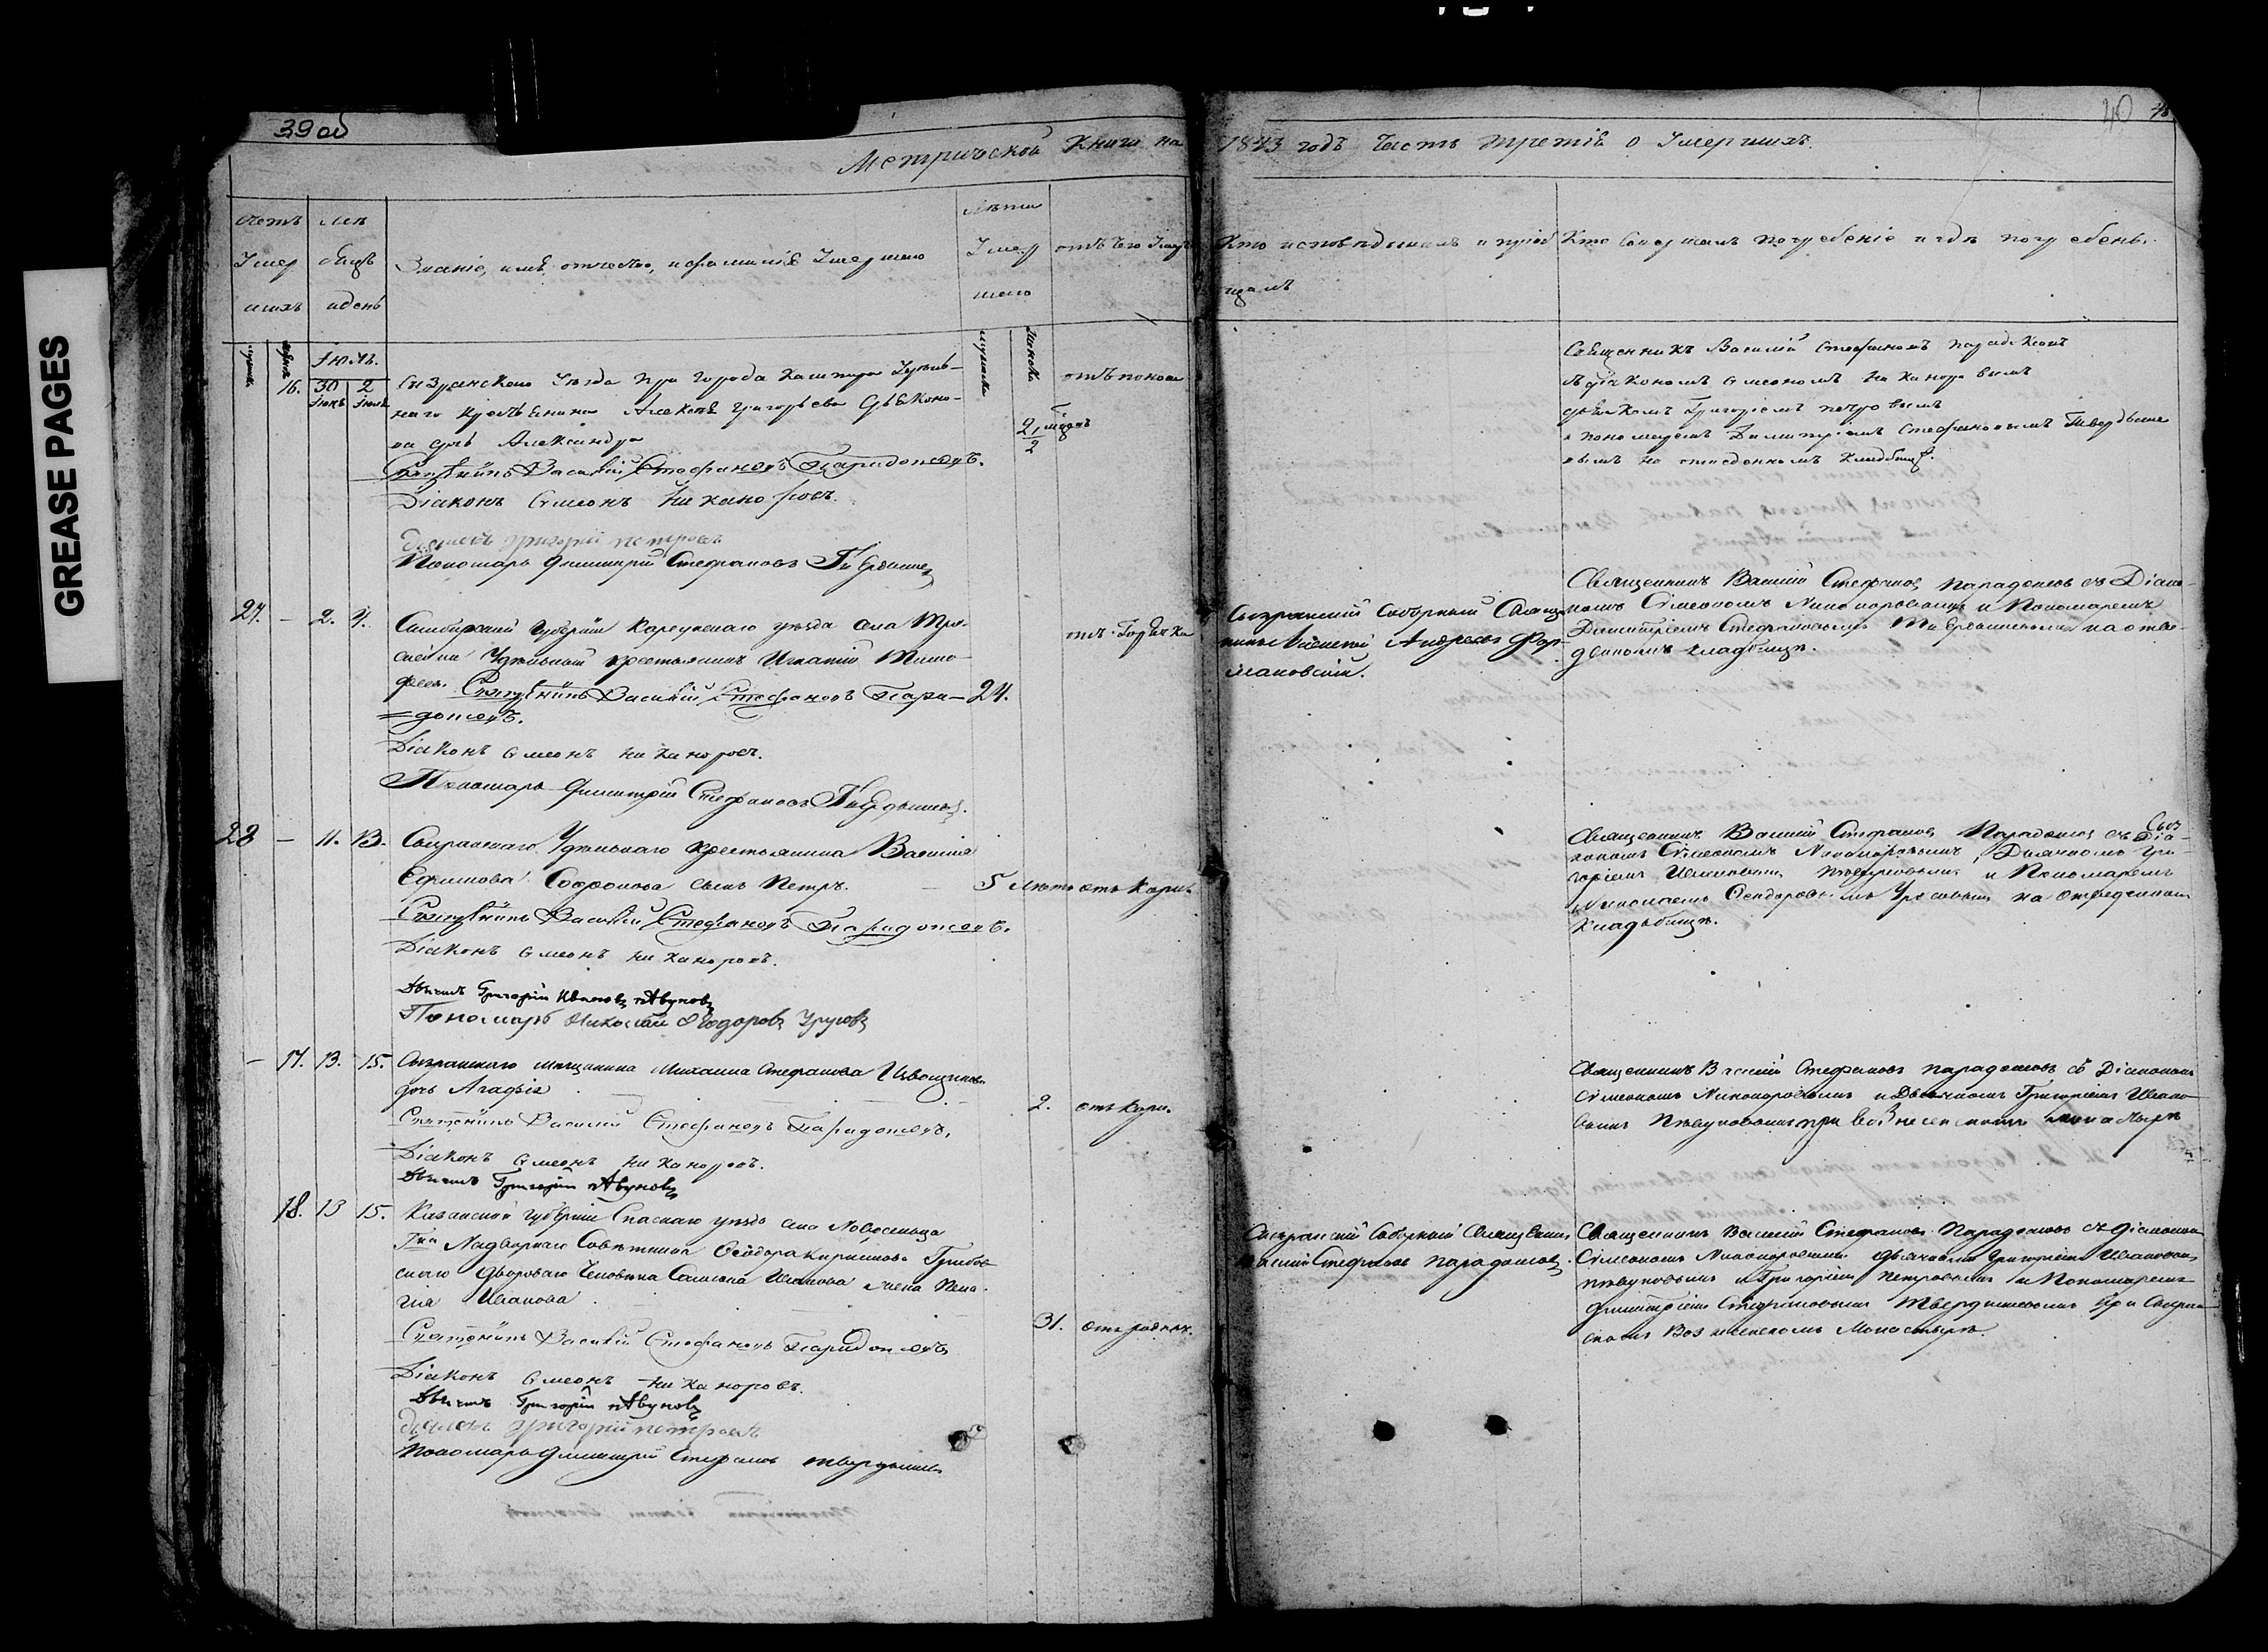 GREASE PAGES
39 об
40
Метрической Книги на 1843 годъ Часть третія о Умершихъ.
Счетъ Умершихъ
Месяцъ и день
Званіе, имя, отчество, и фамилія Умершаго
Лѣта Умершаго
отъ чего Умеръ
Кто исповѣдывалъ и пріобщалъ
Кто Совершалъ погребеніе и гдѣ погребены.
Іюль.
16. 30 Іюнь 2 Іюль
Сызранскаго Уѣзда при города Кашпира
наго Крестьянина Алексѣя Григорьева
на дочь Александра
2 1/2
отъ поноса
Василій Стефановъ Парадоксовъ.
Діаконъ Симеонъ Никаноровъ.
дьячекъ григорій петровъ
Пономарь Димитрій Стефановъ Твердышев
Священникъ Василій Стефановъ Парадоксовъ
съ діакономъ Симеономъ Никаноровымъ
дьячкомъ Григоріемъ петровымъ
и пономаремъ Димитріемъ Стефановымъ Твердыше
вымъ на отведенномъ кладбищѣ.
27. – 2. 4.
Симбирской Губерніи Корсунскаго уѣзда села
Удѣльный крестьянинъ Игнатій Тимо-
феев.
24.
отъ Горячки
Василій Стефановъ Пара-
=доксовъ.
Діаконъ Симеонъ Никаноровъ.
Пономарь Димитрій Стефановъ Твердышев.
Сызранскій Соборный Свяще
никъ Алексей Андреевъ
мановскій.
Священникъ Василій Стефанов Парадоксов съ Діако-
номъ Симеономъ Никаноровымъ и Пономаремъ
Димитріемъ Стефановымъ Твердышевымъ на отве-
денномъ кладбищѣ.
28 – 11. 13.
Сызранскаго Удѣльнаго Крестьянина Василія
Ефимова Софронова сынъ Петръ.
5 лѣтъ
отъ Кори
Василій Стефановъ Парадоксовъ.
Діаконъ Симеонъ Никаноровъ.
Дьячекъ Григорій Ивановъ пѣвуновъ
Пономарь Николай Ѳеодоровъ Урусовъ
Священникъ Василій Стефанов Парадоксов съ Діа-
кономъ Симеономъ Никаноровымъ, Дьячкомъ Гри-
горіемъ Ивановымъ Пѣвуновымъ и Пономаремъ
Николаемъ Ѳеодоровымъ Урусовымъ на отведенномъ
Кладбищѣ.
– 17. 13. 15.
Сызранскаго мѣщанина Михаила Стефанова Извощикова
дочь Агафья
2.
отъ Кори.
Василій Стефановъ Парадоксовъ.
Діаконъ Симеонъ Никаноровъ.
Дьячекъ Григорій пѣвуновъ
Священникъ Василій Стефановъ парадоксовъ съ Діакономъ
Симеономъ Никаноровымъ и Дьячкомъ Григоріемъ Ивано
вымъ Пѣвуновымъ при вознесенскомъ монастырѣ
18. 13 15.
Казанской Губерніи Спаскаго уѣзда села
Надворнаго Совѣтника Ѳеодора
Двороваго Человѣка Иванова жена Пела-
гія Иванова
31.
отъ родовъ.
Василій Стефановъ Парадоксовъ
Діаконъ Симеонъ Никаноровъ.
Дьячекъ Григорій пѣвуновъ
дьячекъ григорій петровъ
Пономарь Димитрій Стефанов твердышев
Сызранскій Соборный Священникъ
Василій Стефанов Парадоксов.
Священникъ Василій Стефановъ Парадоксовъ съ діакономъ
Симеономъ Никаноровымъ дьячками Григоріемъ Ивановымъ
пѣвуновымъ и Григоріемъ Петровымъ и Пономаремъ
Димитріемъ Стефановымъ Твердышевымъ при Сызран-
скомъ Вознесенскомъ Монастырѣ.